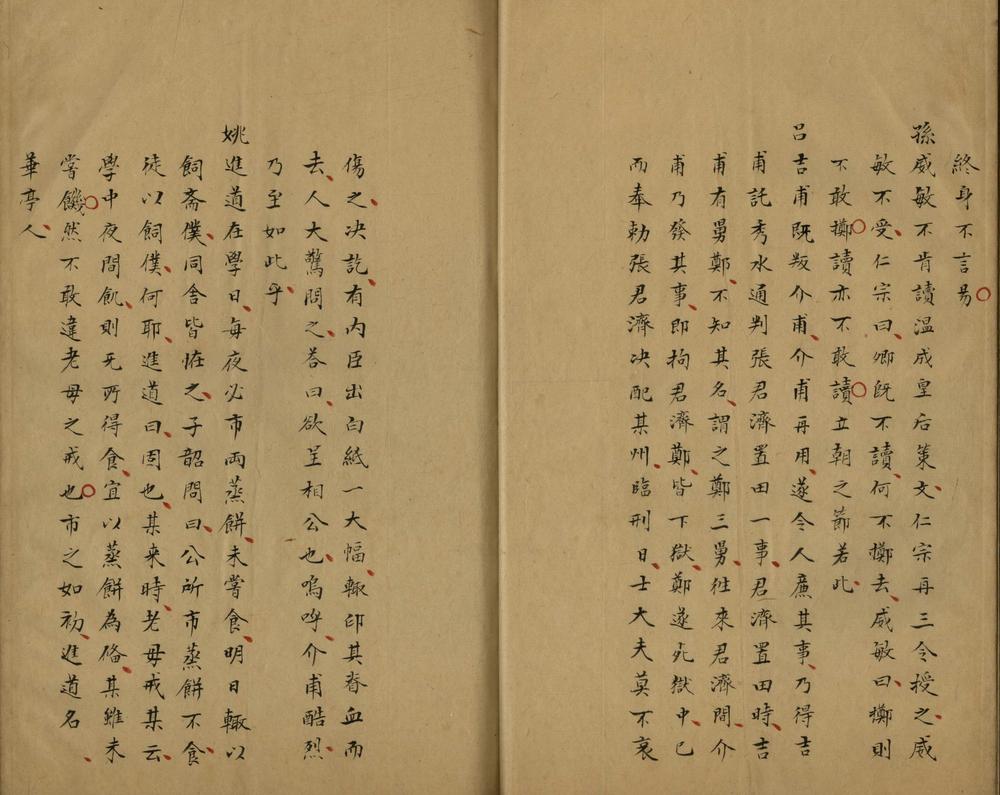 終身不言易
孫威敏不肯讀温成皇后策文仁宗再三令授之威
敏不受仁宗曰卿既不讀何不擲去威敏曰擲則
不敢擲讀亦不敢讀立朝之節若此
吕吉甫既叛介甫介甫再用遂令人廉其事乃得吉
甫託秀水通判張君濟置田一事君濟置田時吉
甫有舅鄭不知其名謂之鄭三舅徃來君濟間介
甫乃發其事即拘君濟鄭皆下獄鄭遂死獄中已
而奉勅張君濟决配某州臨刑日士大夫莫不哀
傷之决訖有内臣出白紙一大幅輙印其脊血而
去人大驚問之荅曰欲呈相公也嗚呼介甫酷烈
乃至如此乎
姚進道在學日每夜必市兩蒸餅未嘗食明日輙以
飼齋僕同舍皆恠之子韶問曰公所市蒸餅不食
徒以飼僕何耶進道曰固也某来時老母戒某云
學中夜間飢則无所得食宜以蒸餅為俻某雖未
嘗饑然不敢違老母之戒也市之如初進道名
華亭人